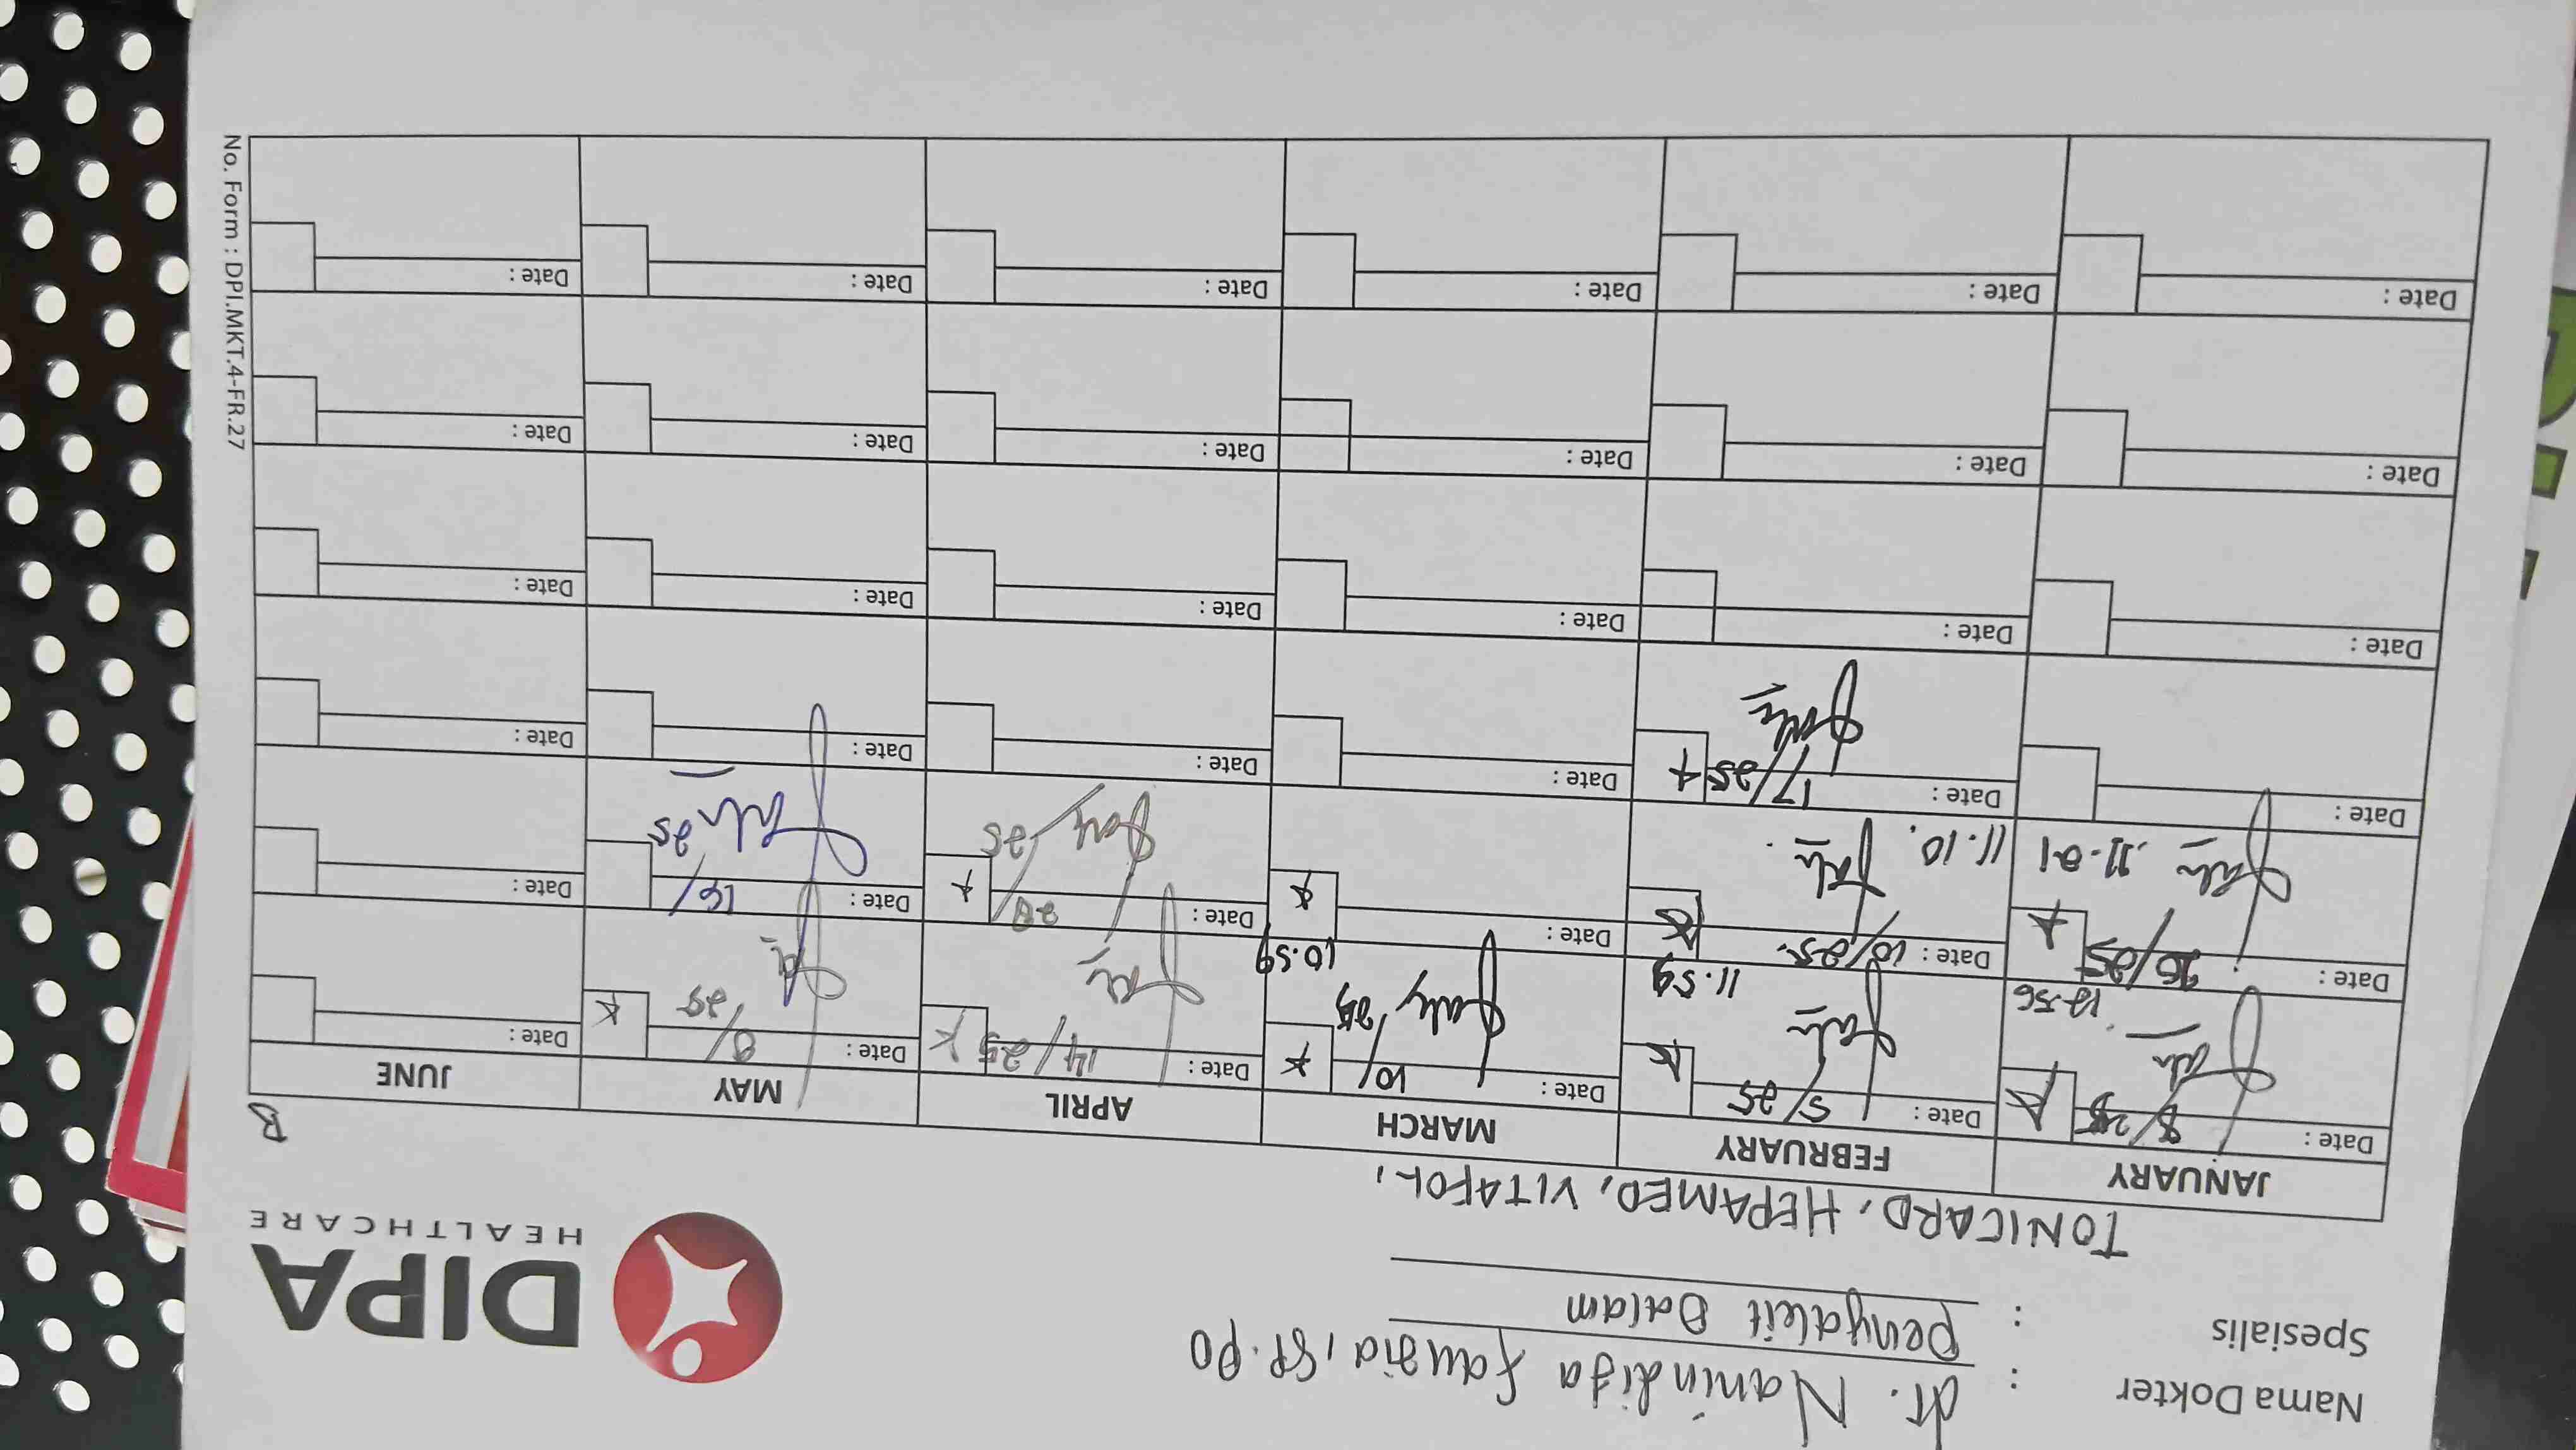 Nama Dokter : dr. Nanindita Fauzia, SP.PD
Spesialis : Penyakit Dalam
DIPA
HEALTHCARE
TONICARD, HEPAMED, VITAFOL,
B
JANUARY FEBRUARY MARCH APRIL MAY JUNE
Date : 8/25 Date : 5/25 Date : 10/25 Date : 14/25 Date : 8/25 Date :
12.56 11.59 10.59
Date : 26/25 Date : 10/25 Date : Date : 28/25 Date : 16/25 Date :
11.01 11.10
Date : Date : 17/25 Date : Date : Date : Date :
Date : Date : Date : Date : Date : Date :
Date : Date : Date : Date : Date : Date :
Date : Date : Date : Date : Date : Date :
No. Form : DPI.MKT.4-FR.27